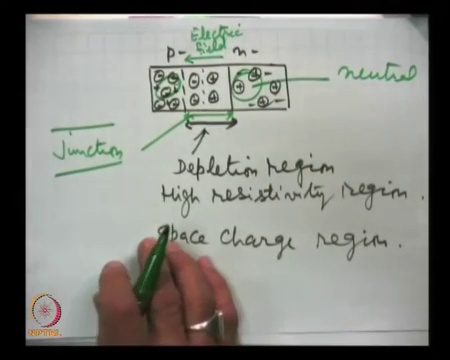 Electric
field
p- n-
neutral
Junction
Depletion region
High resistivity region.
Space charge region.
NPTEL